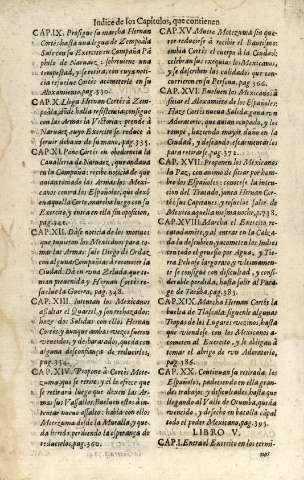 Indice de los Capitulos, que contienen
CAP. IX. Prosigue su marcha Hernan
Cortès, hasta una legua de Zempoàla
Sale con su Exercito en Campaña Pã
philo de Narvaez; sobreviene una
tempestad, y se retira, con cuya noti-
cia resuelve Cortès acometerle en su
Alojamiento. pag. 330.
CAP. X. Llega Hernan Cortès à Zem-
poàla,
con las Armas la Victoria: prende à
Narvaez, cuyo Exercito se reduce à
servir debaxo de su mano, pag. 335.
CAP. XI. Pone Cortès en obediencia la
Cavalleria de Narvaez, que andava
en la Campaña: recibe noticia de que
avian tomado las Armas los Mexi-
canos contra los Españoles, que dexò
en aquella Corte, marcha luego con su
Exercito, y entra en ella sin oposicion,
pag. 342.
CAP. XII. Dase noticia de los motivos
que tuvieron los Mexicanos para to-
mar las Armas: sale Diego de Ordàz
con algunas Compañias à reconocer la
Ciudad: Dà en una Zelada, que te-
nian prevenida, y Hernan Cortès re-
suelve la Guerra, pag. 348.
CAP. XIII. Intentan los Mexicanos
assaltar el Quartel, y son rechazados:
haze dos Salidas con ellos Hernan
Cortès; y aunque ambas vezes fueron
vencidos, y desbaratados, queda con
alguna desconfiança de reducirlos,
pag. 354.
CAP. XIV. Propone à Cortès Mote-
zuma, que se retire, y èl le ofrece que
se retirarà luego que dexen las Ar-
mas sus Vassallos. Buelven ellos à in-
tentar nuevo assalto: habla con ellos
Motezuma desde la Muralla, y que-
da herido, perdiendo la esperança de
reducirlos, pag. 360.
CAP. XV. Muere Motezuma sin que-
rer reducirse à recibir el Bautismo:
embia Cortès el cuerpo à la Ciudad:
celebran sus exequias los Mexicanos,
y se describen las calidades que con-
currieron en su Persona, pag. 366.
CAP. XVI. Buelven los Mexicanos à
sitiar el Alojamiento de los Españoles:
Haze Cortès nueva Salida; gana un
Adoratorio, que avian ocupado, y los
rompe, haziendo mayor daño en la
Ciudad, y deseando escarmentarlos
para retirarse, pag. 372.
CAP. XVII. Proponen los Mexicanos
la Paz, con animo de sitiar por ham-
bre los Españoles: conocese la inten-
cion del Tratado, junta Hernan Cor-
tès sus Capitanes, y resuelve salir de
Mexico aquella misma noche, pag. 378.
CAP. XVIII. Marcha el Exercito re-
catadamente, y al entrar en la Calza-
da le descubren, y acometen los Indios
con todo el gruesso por Agua, y Tie-
rra. Pelease largo rato, y ultimamen-
te se consigue con dificultad, y consi-
derable perdida, hasta salir al Para-
ge de Tacùba, pag. 383.
CAP. XIX. Marcha Hernan Cortès la
buelta de Tlascala: siguenle algunas
Tropas de los Lugares vezinos, hasta
que uniendose con los Mexicanos a-
cometen al Exercito, y le obligan à
tomar el abrigo de un Adoratorio,
pag. 386.
CAP. XX. Continuan su retirada los
Españoles, padeciendo en ella gran-
des trabajos, y dificultades, hasta que
llegando al Valle de Otumba, queda
vencido, y deshecho en batalla campal
todo el poder Mexicano, pag. 393.
LIBRO V.
CAP. I. Entra el Exercito en los termi-
nos